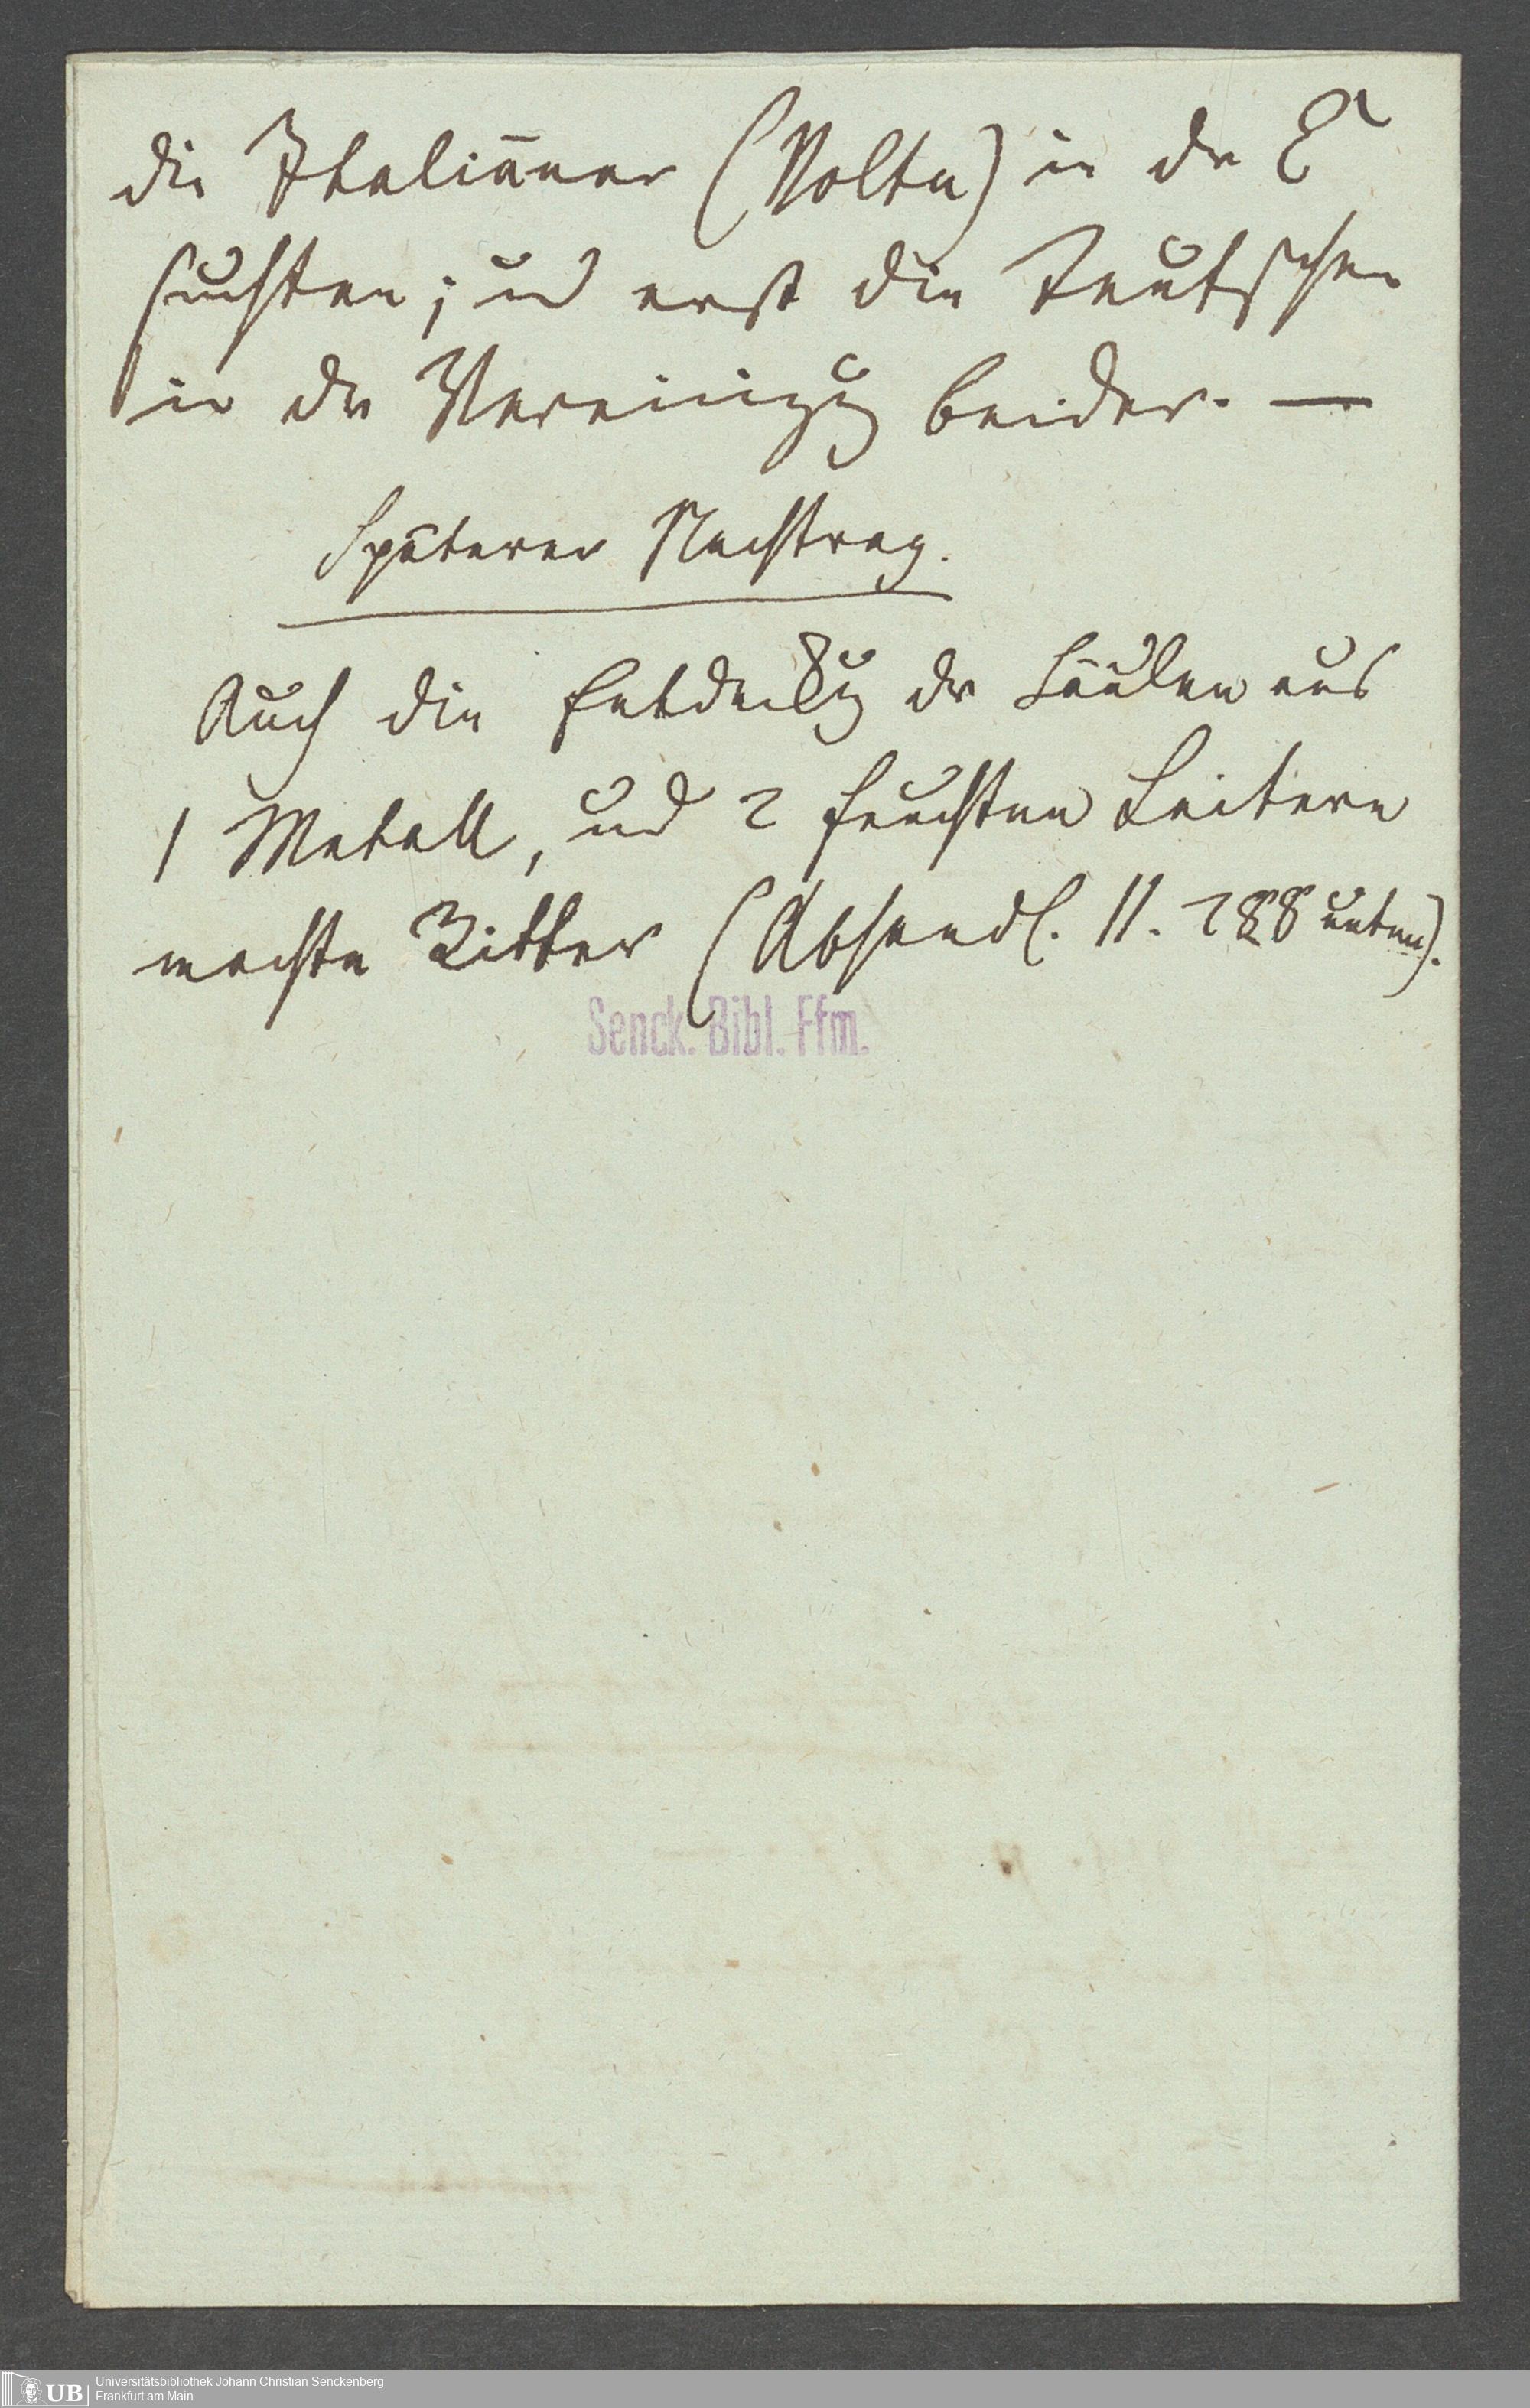 die Italiäner (Volta) in der E
suchten; und erst die Teutschen
in der Vereinigung beider. —
Späterer Nachtrag.
Auch die Entdeckung der Säulen aus
1 Metall, und 2 feuchten Leitern
machte Ritter (Abhandl. II. 288 unten).
Senck. Bibl. Ffm.
UB
Universitätsbibliothek Johann Christian Senckenberg
Frankfurt am Main